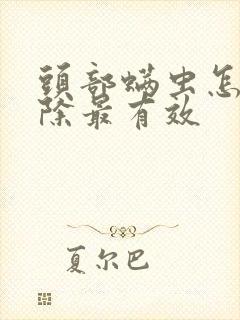 頭部螨虫怎
除最有效
夏尔巴